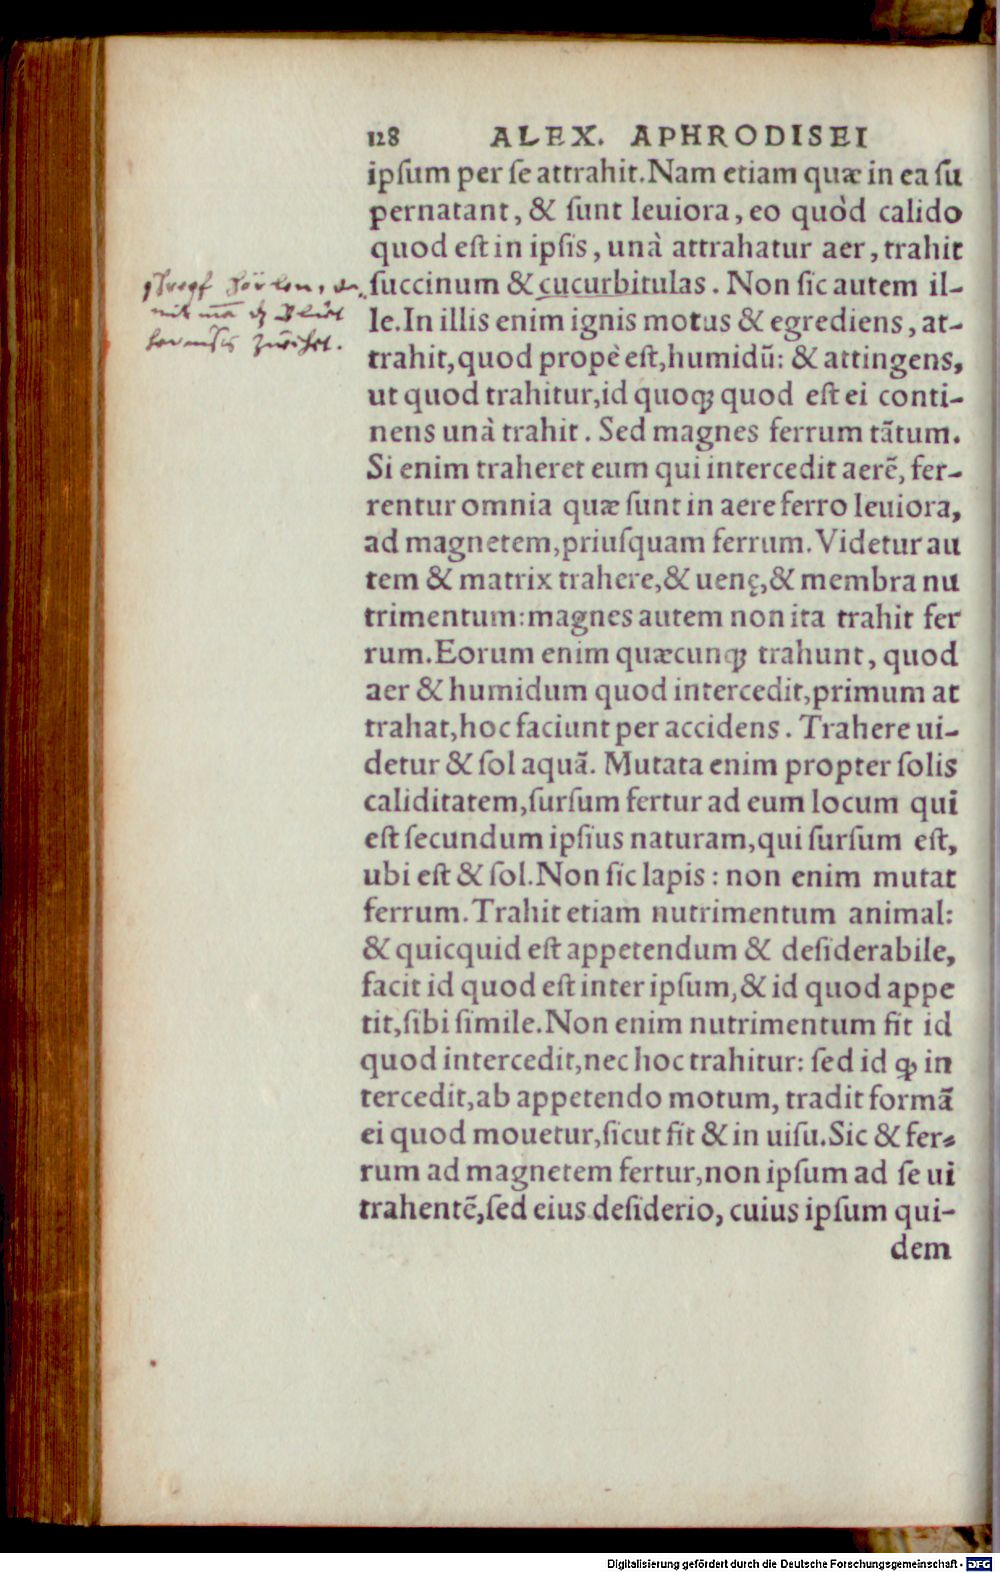 128 ALEX. APHRODISEI
ipſum per ſe attrahit.Nam etiam quæ in ea ſu
pernatant, & ſunt leuiora, eo quòd calido
quod eſt in ipſis, unà attrahatur aer, trahit
ſuccinum & cucurbitulas. Non ſic autem il-
le.In illis enim ignis motus & egrediens, at-
trahit,quod propè eſt,humidũ: & attingens,
ut quod trahitur,id quoqꝫ quod eſt ei conti-
nens unà trahit. Sed magnes ferrum tãtum.
Si enim traheret eum qui intercedit aerẽ, fer-
rentur omnia quæ ſunt in aere ferro leuiora,
ad magnetem,priuſquam ferrum. Videtur au
tem & matrix trahere,& uenę,& membra nu
trimentum:magnes autem non ita trahit fer
rum.Eorum enim quæcunqꝫ trahunt, quod
aer & humidum quod intercedit,primum at
trahat,hoc faciunt per accidens. Trahere ui-
detur & ſol aquã. Mutata enim propter ſolis
caliditatem,ſurſum fertur ad eum locum qui
eſt ſecundum ipſius naturam,qui ſurſum eſt,
ubi eſt & ſol.Non ſic lapis: non enim mutat
ferrum.Trahit etiam nutrimentum animal:
& quicquid eſt appetendum & deſiderabile,
facit id quod eſt inter ipſum,& id quod appe
tit,ſibi ſimile.Non enim nutrimentum fit id
quod intercedit,nec hoc trahitur: ſed id ꝙ in
tercedit,ab appetendo motum, tradit formã
ei quod mouetur,ſicut fit & in uiſu.Sic & fer-
rum ad magnetem fertur,non ipſum ad ſe ui
trahentẽ,ſed eius deſiderio, cuius ipſum qui-
dem
Digitalisierung gefördert durch die Deutsche Forschungsgemeinschaft - DFG